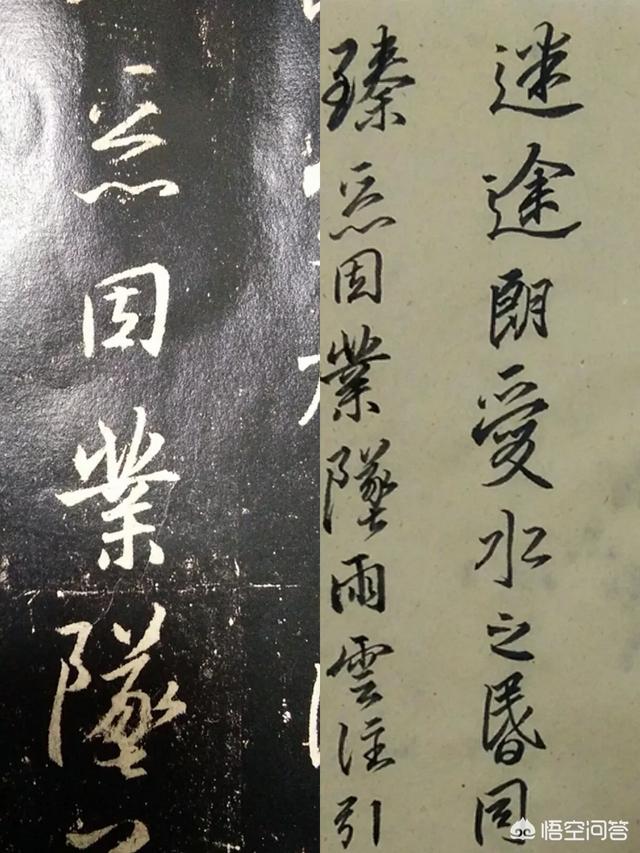 恶因業墜
迷途朗愛水之昬同
臻恶因業墜雨雲注引
悟空问答